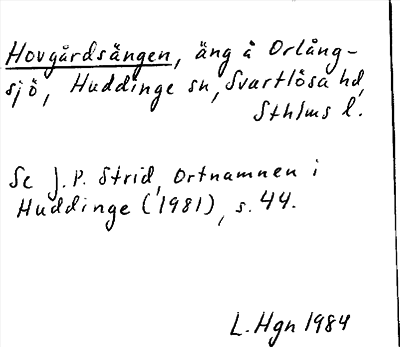 Hovgårdsängen, äng å Orlång-
sjö, Huddinge sn, Svartlösa hd,
Sthlms l.
Se J.P. Strid, Ortnamnen i
Huddinge (1981), s. 44.
L. Hgn 1984